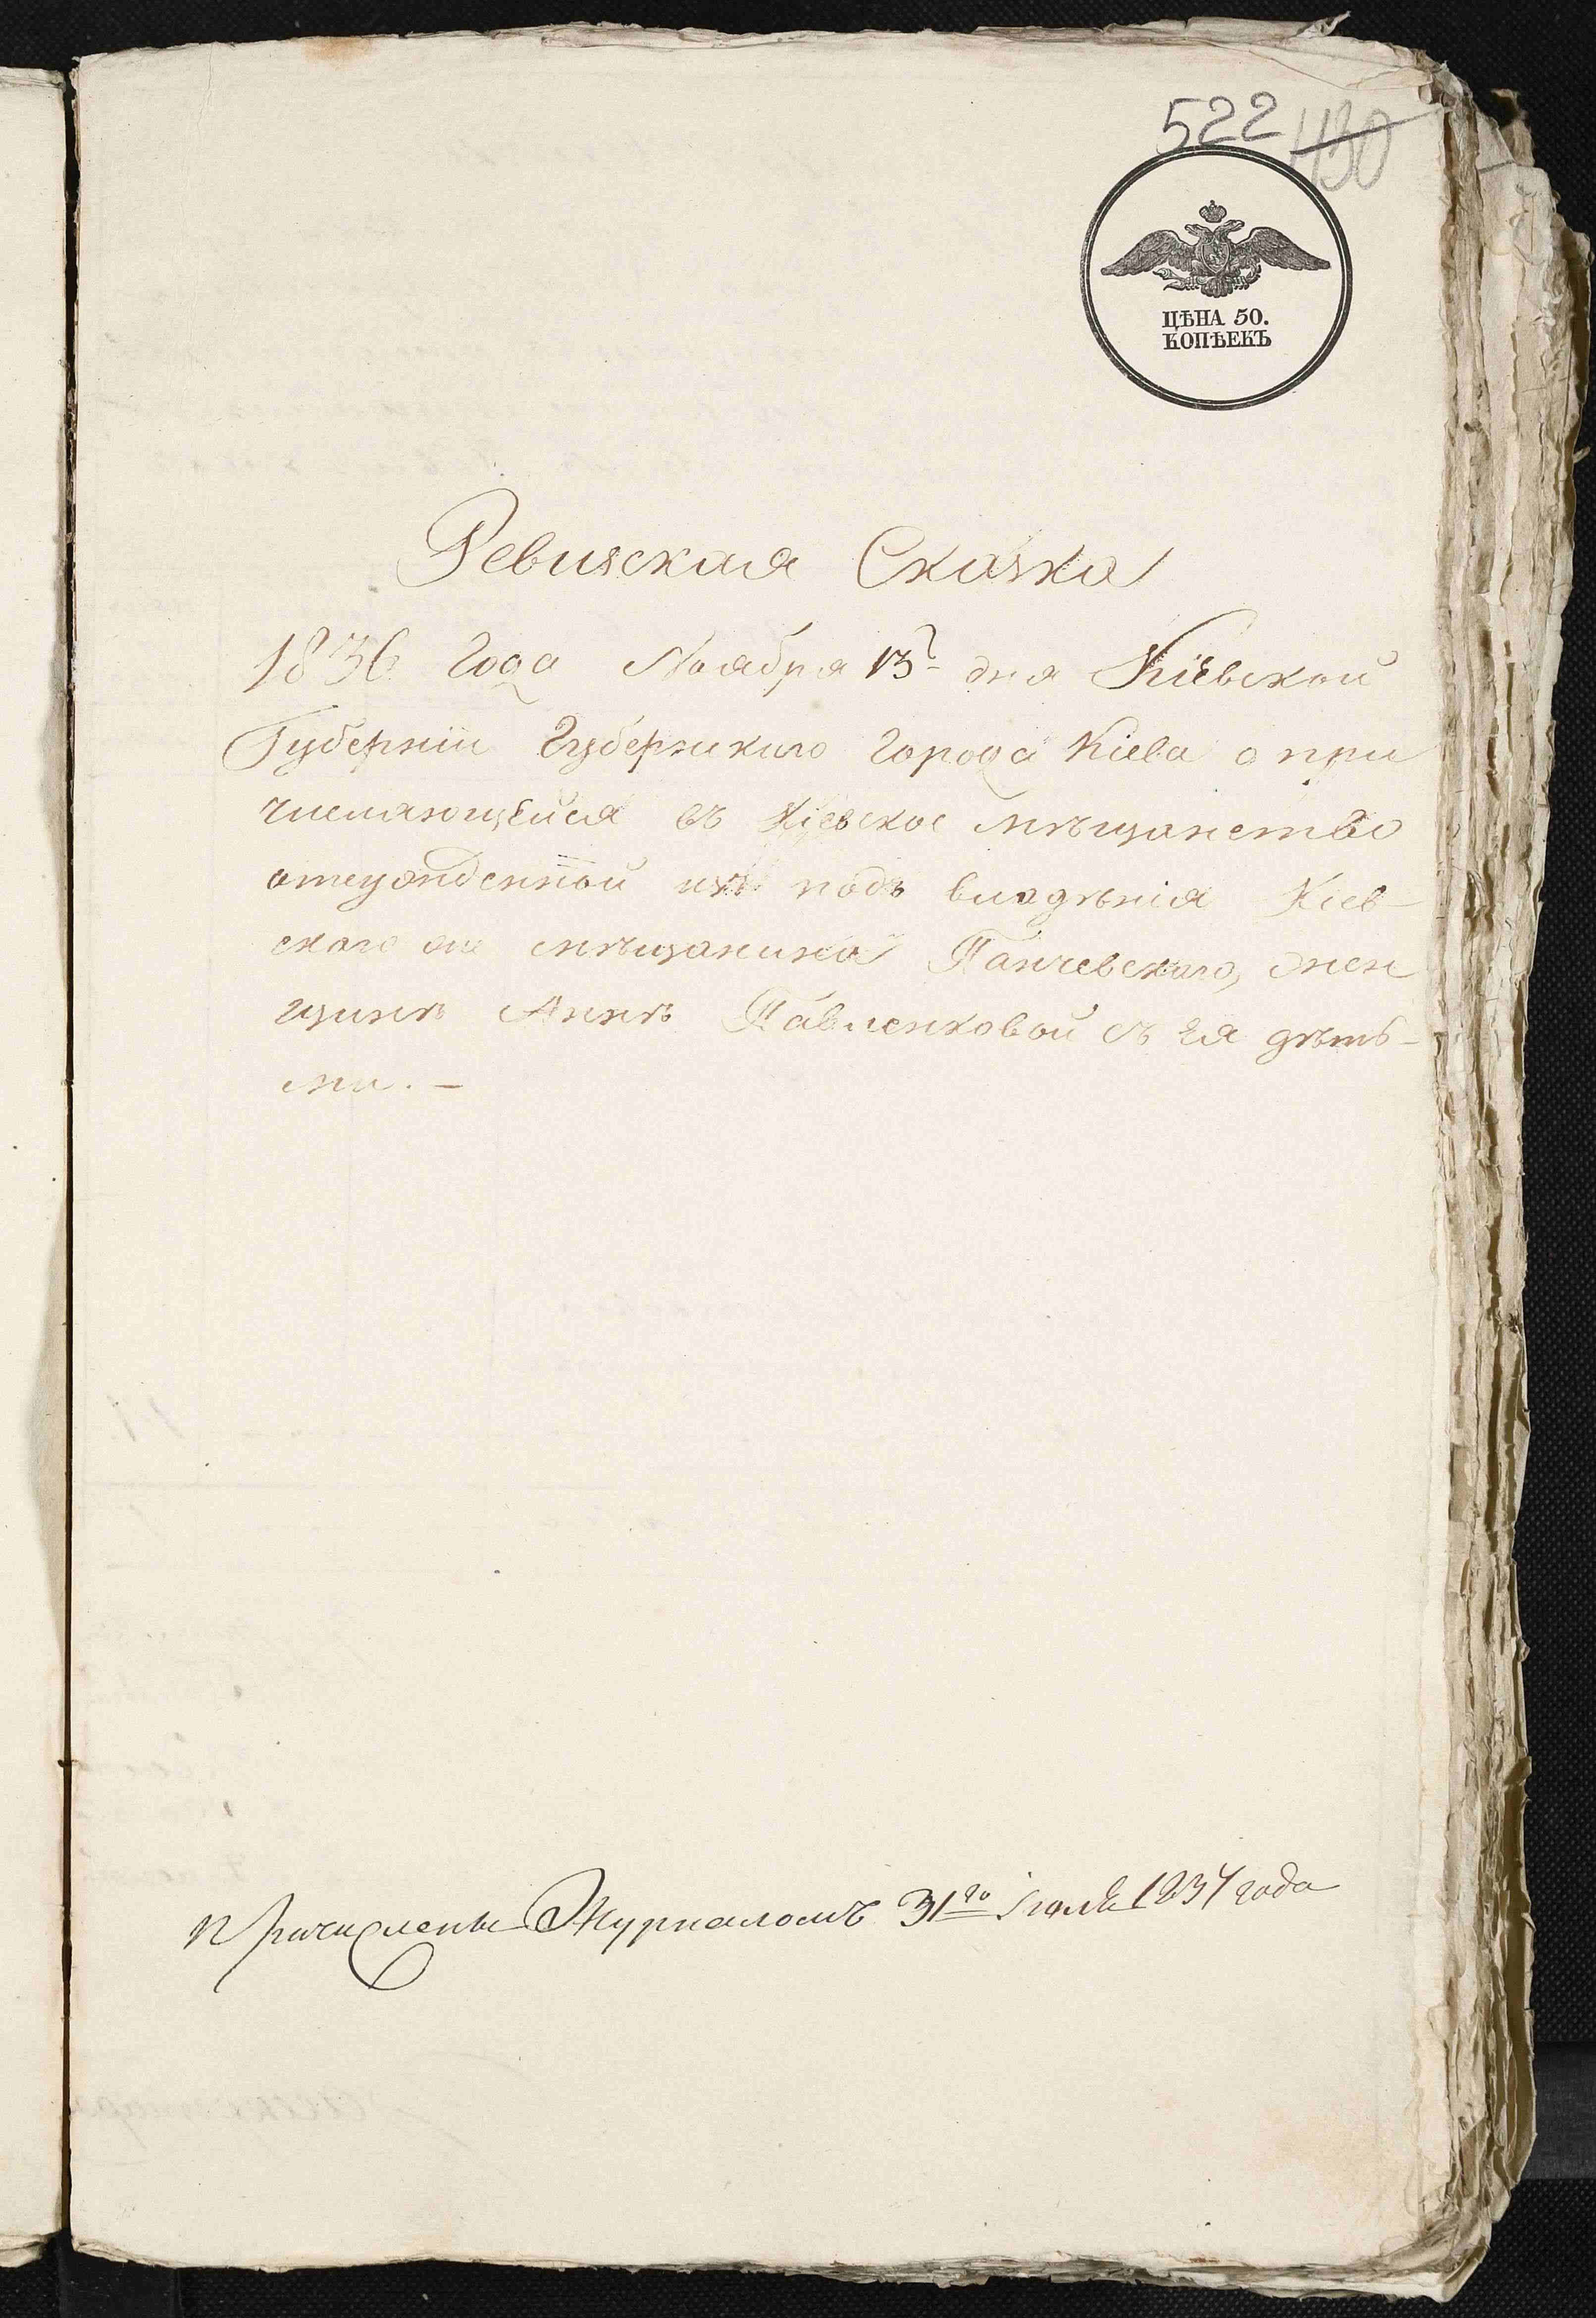 522 430
ЦѢНА 50.
КОПѢЕКЪ
Ревизская Сказка
1836 года Ноября 13 дня Кіевской
Губерніи Губернскаго города Кіева о при
числяющейся въ Кіевское мѣщанство
отсужденной изъ подъ владѣнія Кіев-
скаго же мѣщанина Панчевскаго, жен
щинѣ Аннѣ Павленковой съ ея дѣть-
ми. -
Причислены Журналомъ 31го Іюля 1837 года